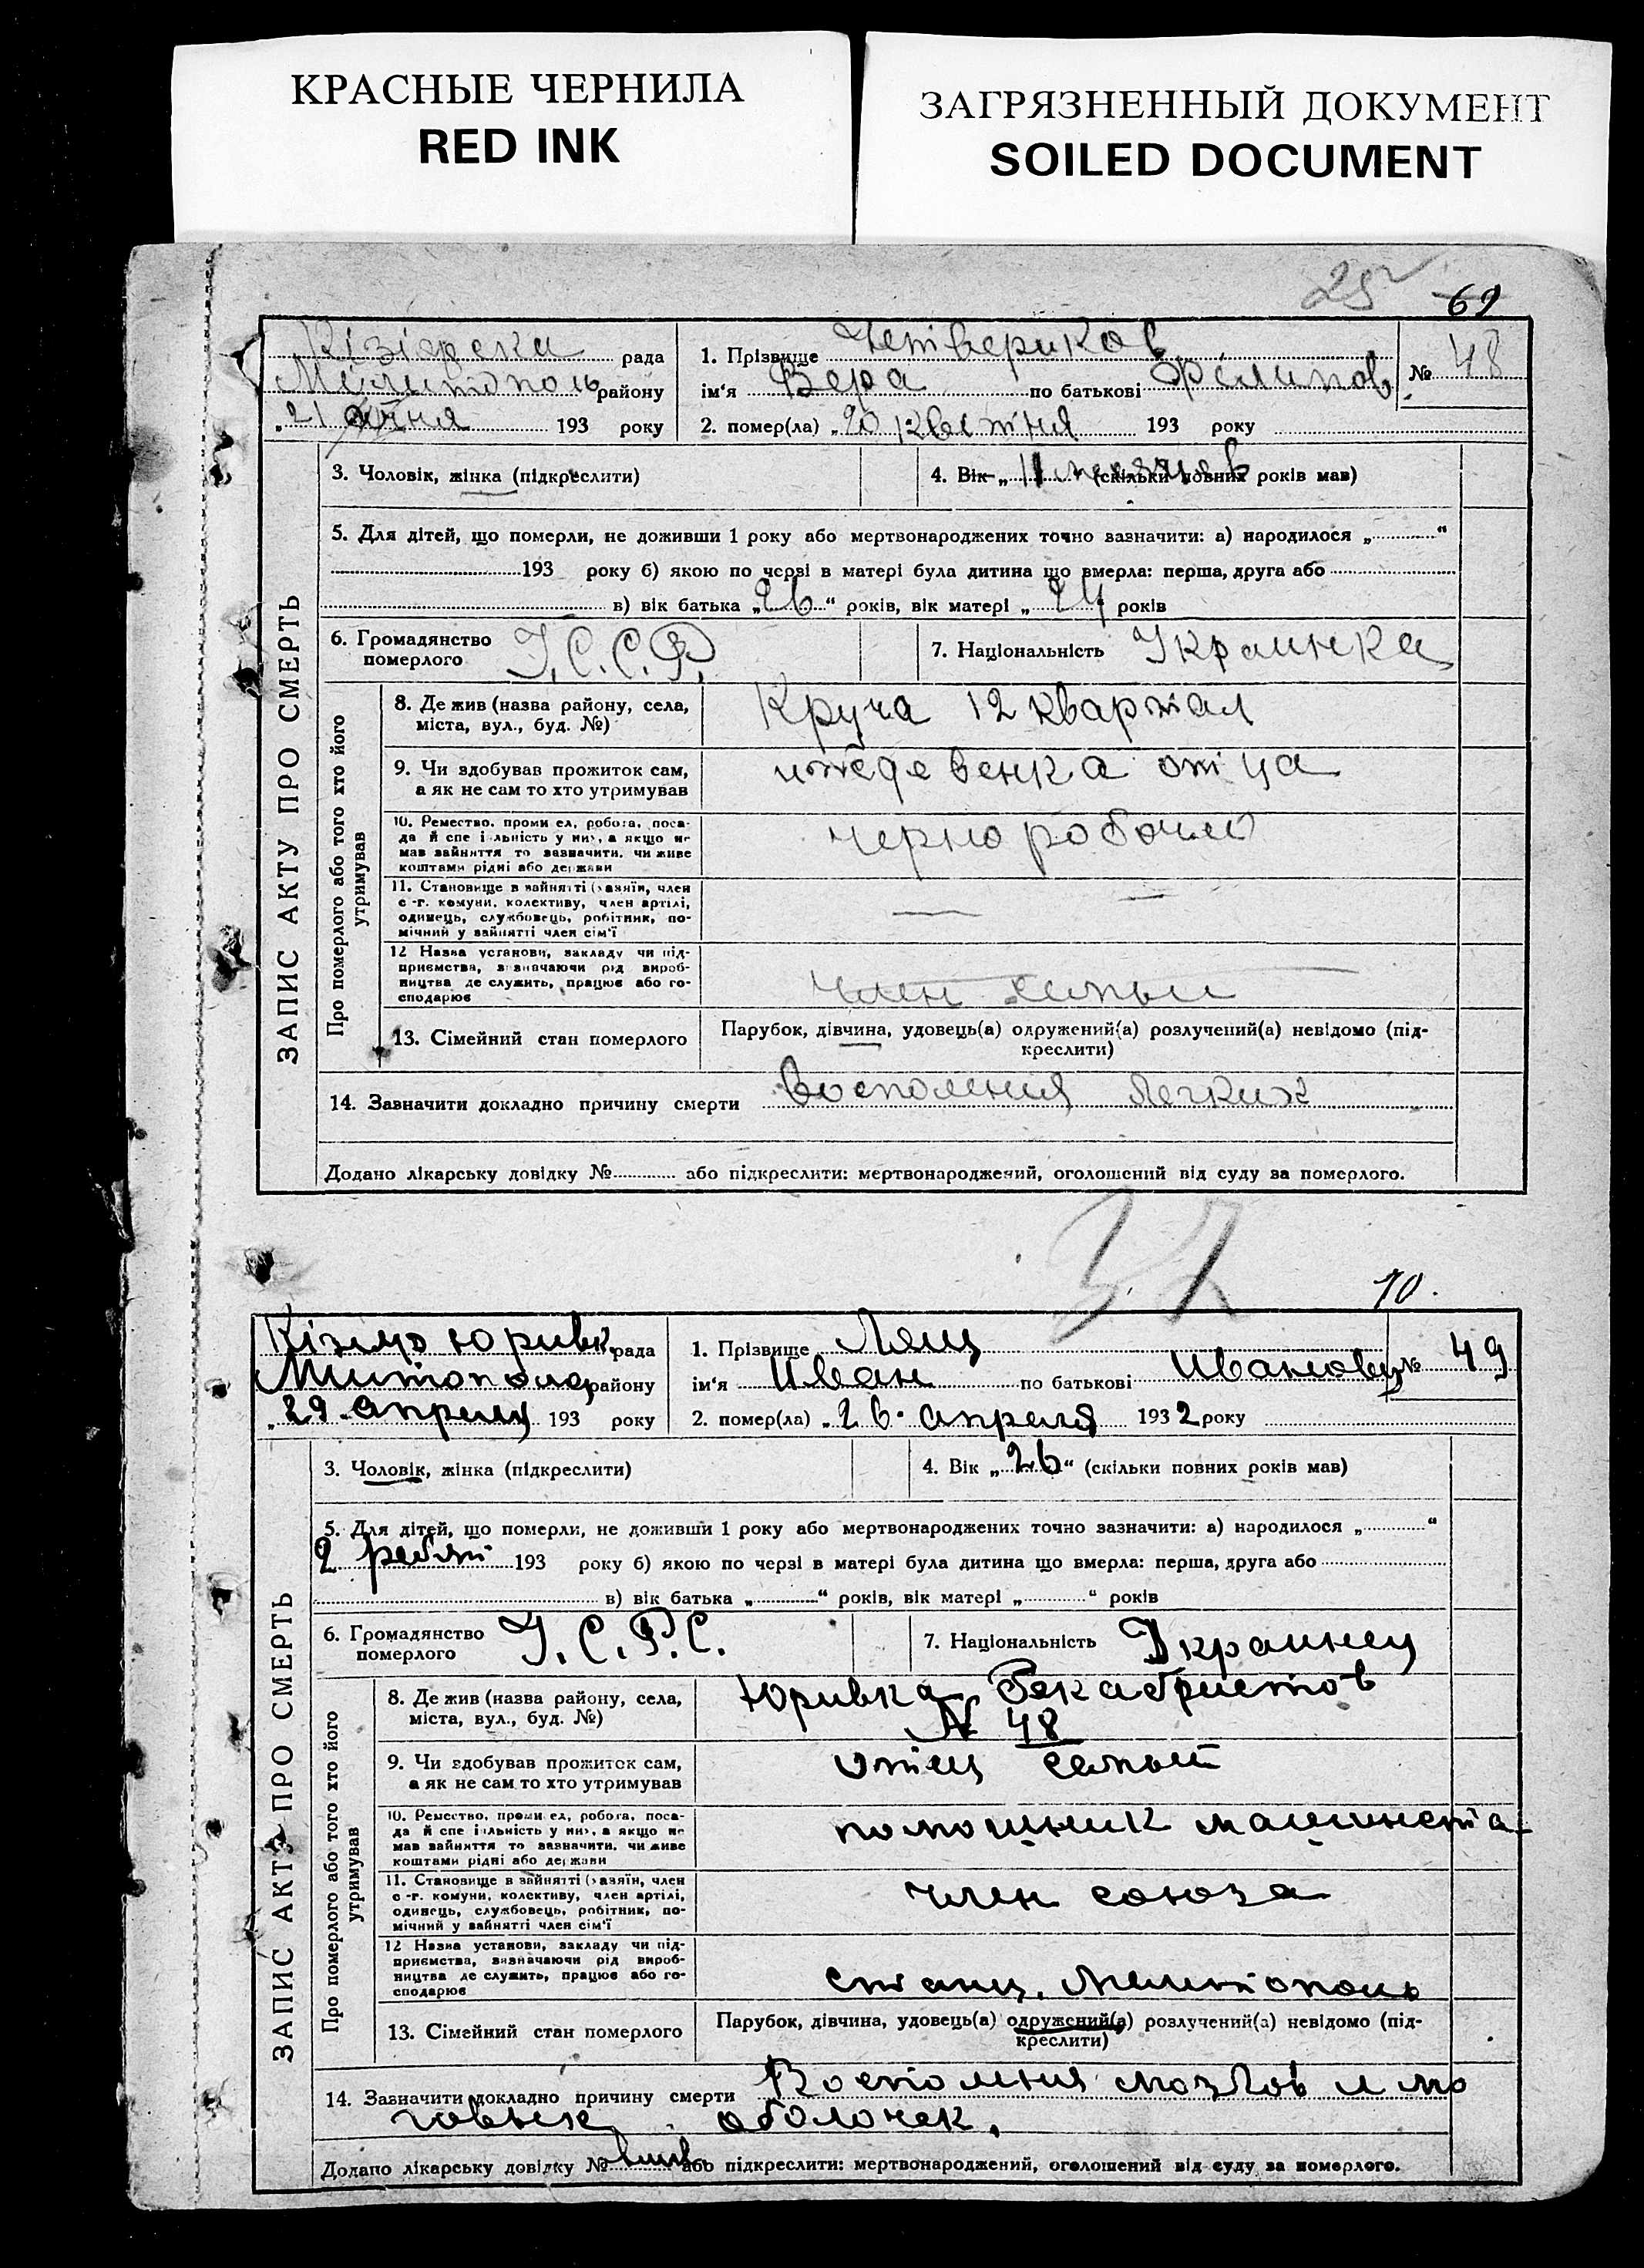 КРАСНЫЕ ЧЕРНИЛА
RED INK
ЗАГРЯЗНЕННЫЙ ДОКУМЕНТ
SOILED DOCUMENT
25 69
Кізіярска рада
Мелитополь району
„21 193 року
1. Прізвище Четвериков
ім'я Вера по батькові Філипов
№ 48
2. помер(ла) „20 квітня 193 року
ЗАПИС АКТУ ПРО СМЕРТЬ
3. Чоловік, жінка (підкреслити)
4. Вік „11 месяцев (скільки повних років мав)
5. Для дітей, що померли, не доживши 1 року або мертвонароджених точно зазначити: а) народилося „ “
193 року б) якою по черзі в матері була дитина що вмерла: перша, друга або
в) вік батька „26“ років, вік матері „24 років
6. Громадянство померлого У.С.С.Р.
7. Національність Украинка
Про померлого або того хто його утримував
8. Де жив (назва району, села,
міста, вул., буд. №)
Круча 12 квартал
9. Чи здобував прожиток сам,
а як не сам то хто утримував
иждевенка отца
10. Ремество, проми ел, робота, поса-
да й спе і льність у них, а якщо не
мав зайняття то зазначити, чи живе
коштами рідні або держави
чернорабочий
11. Становище в зайнятті (хазяїн, член
с -г. комуни, колективу, член артілі,
одинець, службовець, робітник, по-
мічний у зайнятті член сім'ї
12 Назва установи, закладу чи під-
приємства, зазначаючи рід вироб-
ництва де служить, працює або го-
сподарює
член семьи
13. Сімейний стан померлого
Парубок, дівчина, удовець(а) одружений(а) розлучений(а) невідомо (під-
креслити)
14. Зазначити докладно причину смерти Восполения легких
Додано лікарську довідку № або підкреслити: мертвонароджений, оголошений від суду за померлого.
70.
юривк рада
району
„29 апреля 193 року
1. Прізвище Лящ
ім'я Иван по батькові Иванович
№ 49
2. помер(ла) „26. апреля 1932 року
ЗАПИС АКТУ ПРО СМЕРТЬ
3. Чоловік, жінка (підкреслити)
4. Вік „26“ (скільки повних років мав)
5. Для дітей, що померли, не доживши 1 року або мертвонароджених точно зазначити: а) народилося „ “
2 193 року б) якою по черзі в матері була дитина що вмерла: перша, друга або
в) вік батька „ “ років, вік матері „ “ років
6. Громадянство померлого У.С.Р.С.
7. Національність Украинец
Про померлого або того хто його утримував
8. Де жив (назва району, села,
міста, вул., буд. №)
Юривка Декабристов
№ 48
9. Чи здобував прожиток сам,
а як не сам то хто утримував
отец семьи
10. Ремество, проми ел, робота, поса-
да й спе і льність у них, а якщо не
мав зайняття то зазначити, чи живе
коштами рідні або держави
помошник машиниста
11. Становище в зайнятті (хазяїн, член
с -г. комуни, колективу, член артілі,
одинець, службовець, робітник, по-
мічний у зайнятті член сім'ї
член союза
12 Назва установи, закладу чи під-
приємства, зазначаючи рід вироб-
ництва де служить, працює або го-
сподарює
станц. Мелитополь
13. Сімейний стан померлого
Парубок, дівчина, удовець(а) одружений(а) розлучений(а) невідомо (під-
креслити)
14. Зазначити докладно причину смерти Восполения мозгов и мо
говых оболочек,
Додано лікарську довідку № або підкреслити: мертвонароджений, оголошений від суду за померлого.